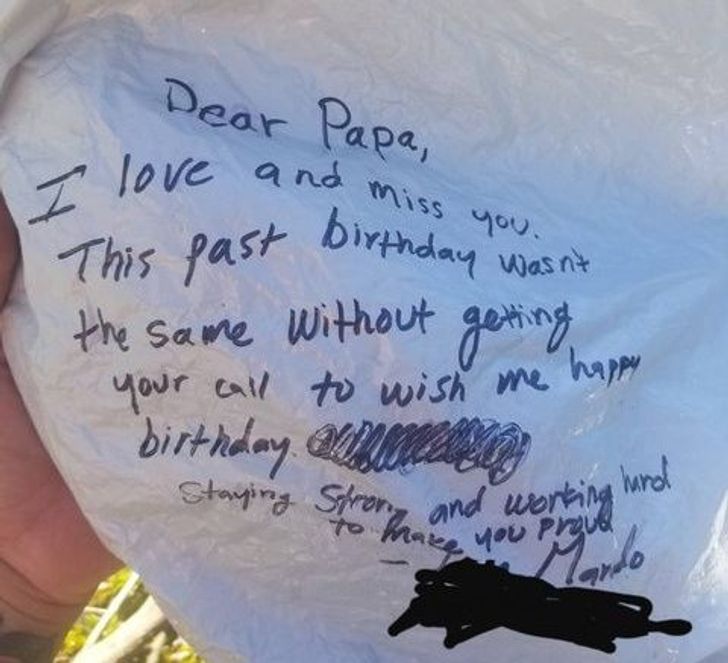 Dear Papa,
I love and miss you.
This past birthday wasn't
the same without getting
your call to wish me happy
birthday.
Staying Strong and working hard
to make you proud
- Mando